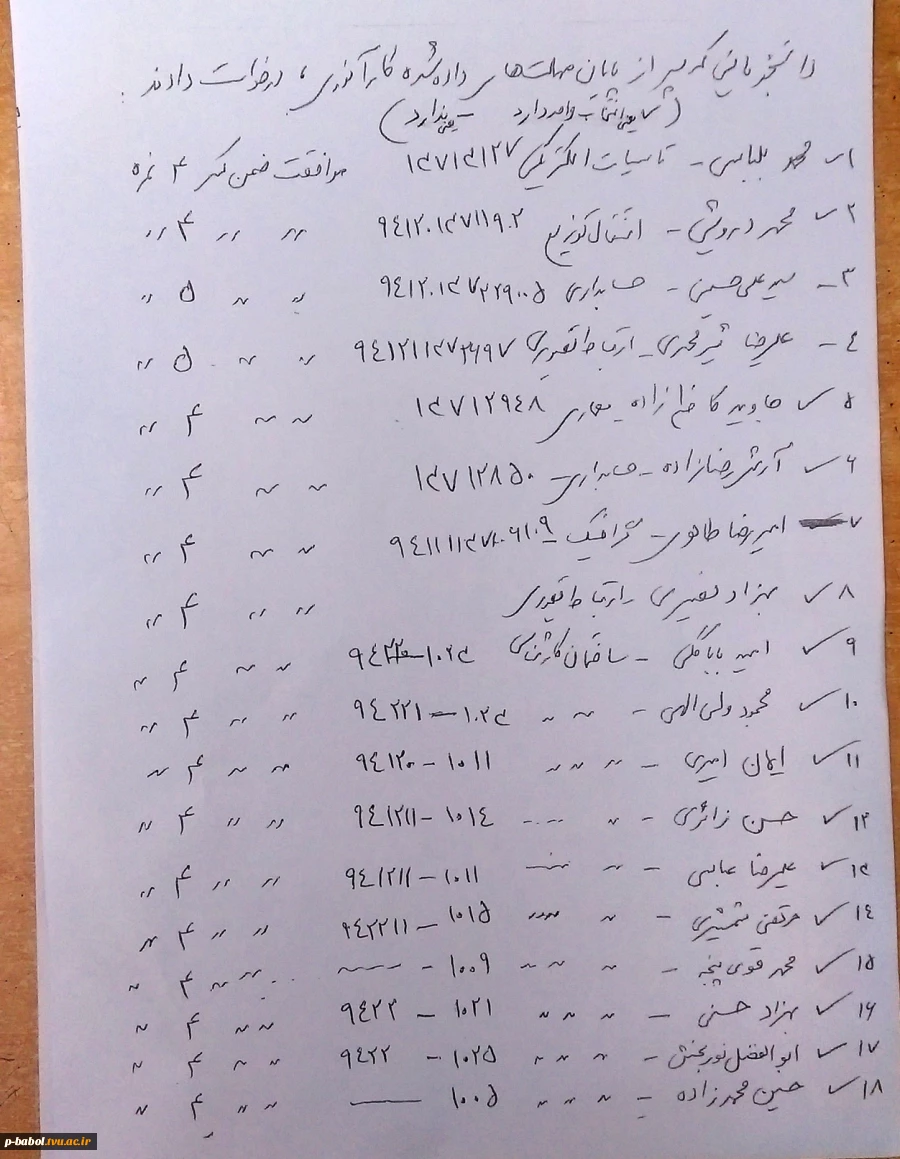 دانشجویانی که پس از پایان مهلت‌های داده شده کارآموزی، درخواست دادند.
(✓ یعنی انتخاب واحد دارد – یعنی ندارد)
۱✓ محمد بلباسی – تاسیسات الکتریکی موافقت ضمن کسر ۴ نمره
۲✓ محمد درویشی – انتقال و توزیع " " ۴ "
۳– سید علی حسینی – حسابداری " " ۵ "
۴– علیرضا شیرمحمدی – ارتباط تصویری " " ۵ "
۵✓ جاوید کاظم زاده معماری ۱۳۷۱۲۹۴۸ " " ۴ "
۶✓ آرش رضازاده – حسابداری – ۱۳۷۱۲۸۵۰ " " ۴ "
۷ امیررضا طاهری – گرافیک " " ۴ "
۸✓ بهزاد نصیری – ارتباط تصویری " " ۴ "
۹✓ امید باباگلی – ساختمان کاردانی " " ۴ "
۱۰✓ محمود ولی الهی – " " ۹۴۲۲۱ – ۱۰۲۳ " " ۴ "
۱۱✓ ایمان امیری – " " " ۹۴۱۲۰ – ۱۰۱۱ " " ۴ "
۱۲✓ حسن زائری – " " ۹۴۱۲۱۱ – ۱۰۱۴ " " ۴ "
۱۳✓ علیرضا عباسی – " " ۹۴۱۲۱۱ – ۱۰۱۱ " " ۴ "
۱۴✓ مرتضی شمشیری – " " ۹۴۲۲۱۱ – ۱۰۱۵ " " ۴ "
۱۵✓ محمد قوی پنجه – " " " " – ۱۰۰۹ " " ۴ "
۱۶✓ بهزاد حسنی – " " " ۹۴۲۲ – ۱۰۲۱ " " ۴ "
۱۷✓ ابوالفضل نوربخش – " " " ۹۴۲۲ – ۱۰۲۵ " " ۴ "
۱۸✓ حسین محمدزاده – " " " — ۱۰۰۵ " " ۴ "
p-babol.tvu.ac.ir